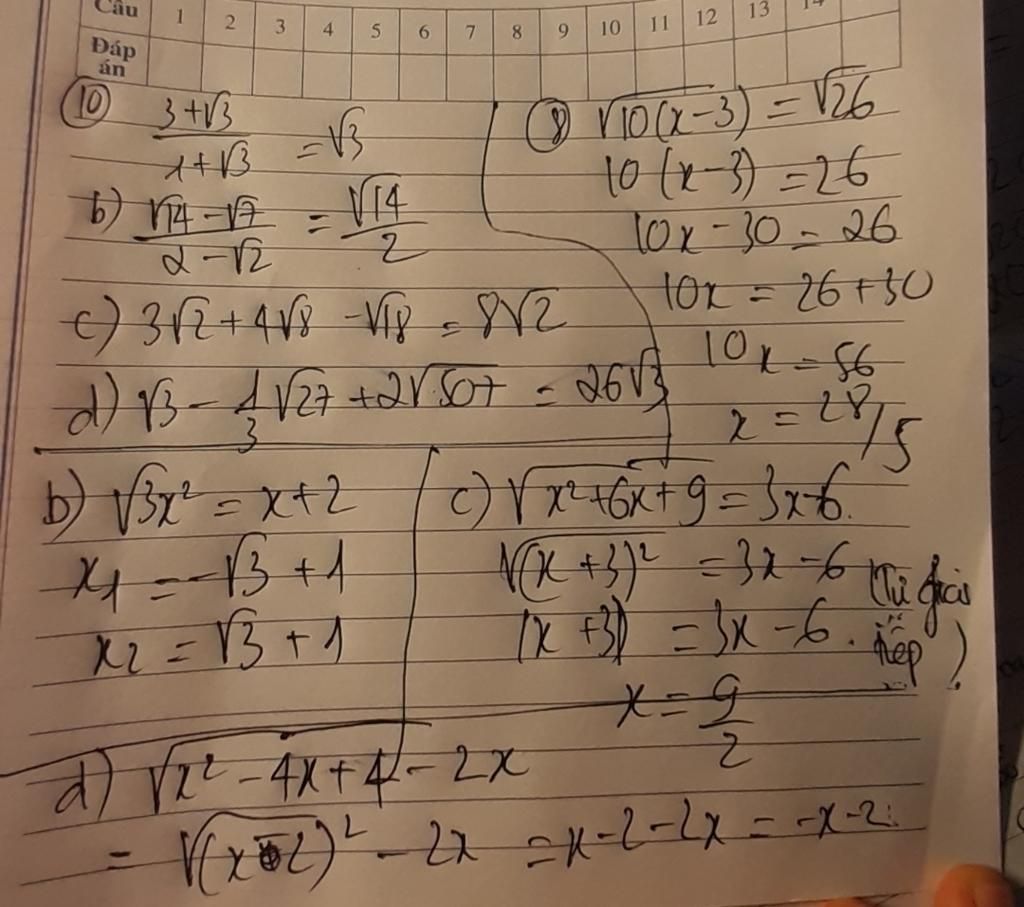 Câu 1 2 3 4 5 6 7 8 9 10 11 12 13 14
Đáp án
⑩ (3+√3)/(1+√3) = √3
b) (√14 - √7)/(2 - √2) = √14/2
c) 3√2 + 4√8 - √18 = 8√2
d) √3 - 1/3 √27 + 2√507 = 26√3
⑧ √10(x-3) = √26
10(x-3) = 26
10x - 30 = 26
10x = 26+30
10x = 56
x = 28/5
b) √3x² = x+2
x₁ = -√3 + 1
x₂ = √3 + 1
c) √x²+6x+9 = 3x-6.
√(x+3)² = 3x-6
|x+3| = 3x-6. (Tự giải tiếp)
x = 9/2
d) √x² - 4x+4 - 2x
= √(x-2)² - 2x = x-2-2x = -x-2.